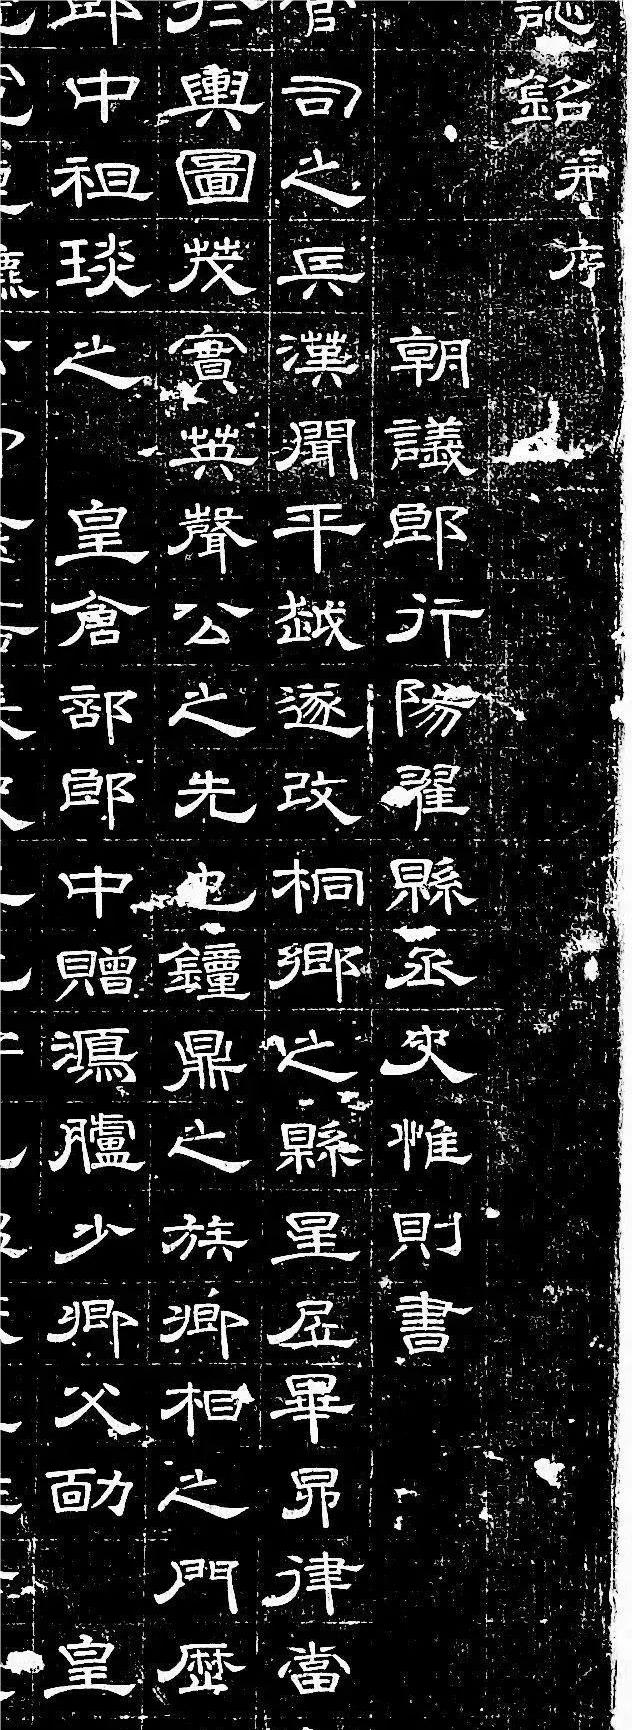 誌銘并序
朝議郎行陽翟縣丞史惟則書
官司之兵漢聞平越遂改桐鄉之縣星居畢昴律當
於輿圖茂實英聲公之先也鐘鼎之族卿相之門歷
郎中祖琰之皇倉部郎中贈鴻臚少卿父勔皇